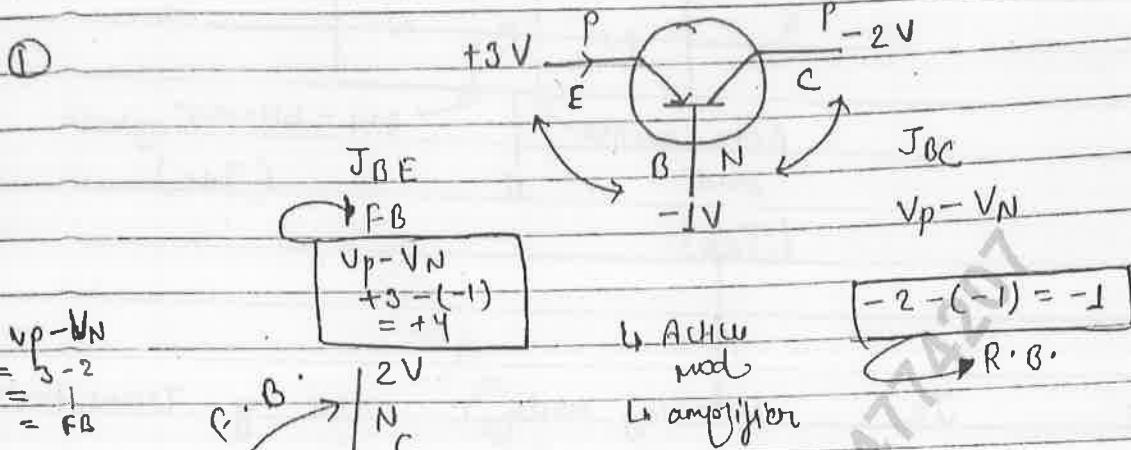 ①
P P
+3V -2V
E C
B N
-1V
J_BE
FB
Vp-VN
+3-(-1)
=+4
J_BC
Vp-VN
-2-(-1)=-1
R.B.
↳ Active
mod
↳ amplifier
Vp-VN
= 3-2
= 1
= FB
2V
N
C
B.